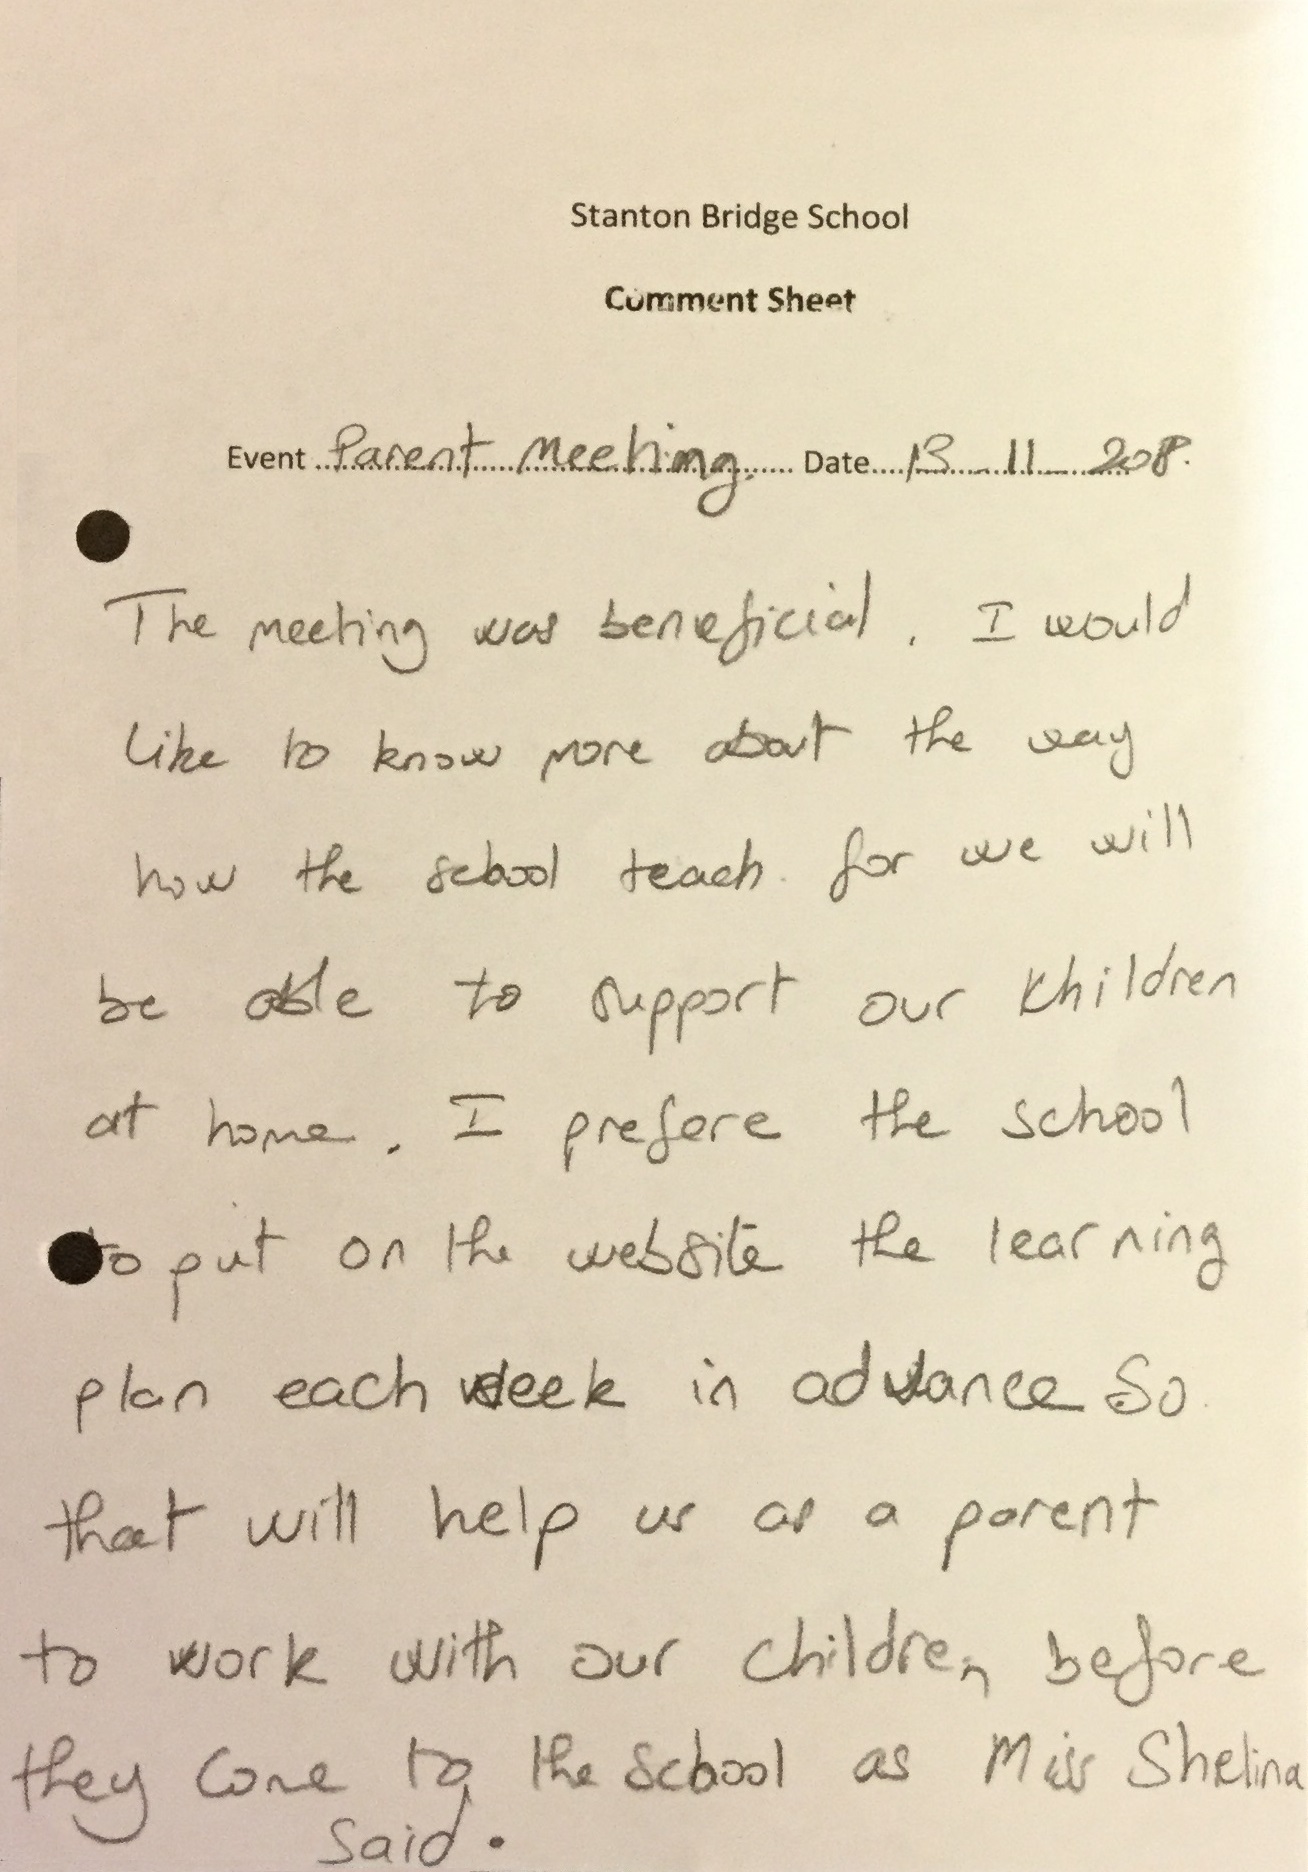 Stanton Bridge School
Comment Sheet
Event Parent Meeting. Date 13-11-2018.
The meeting was beneficial. I would
like to know more about the way
how the school teach. for we will
be able to support our khildren
at home. I prefere the school
to put on the website the learning
plan each week in advance So
that will help us as a parent
to work with our children before
they come to the school as Miss Shelina
said.